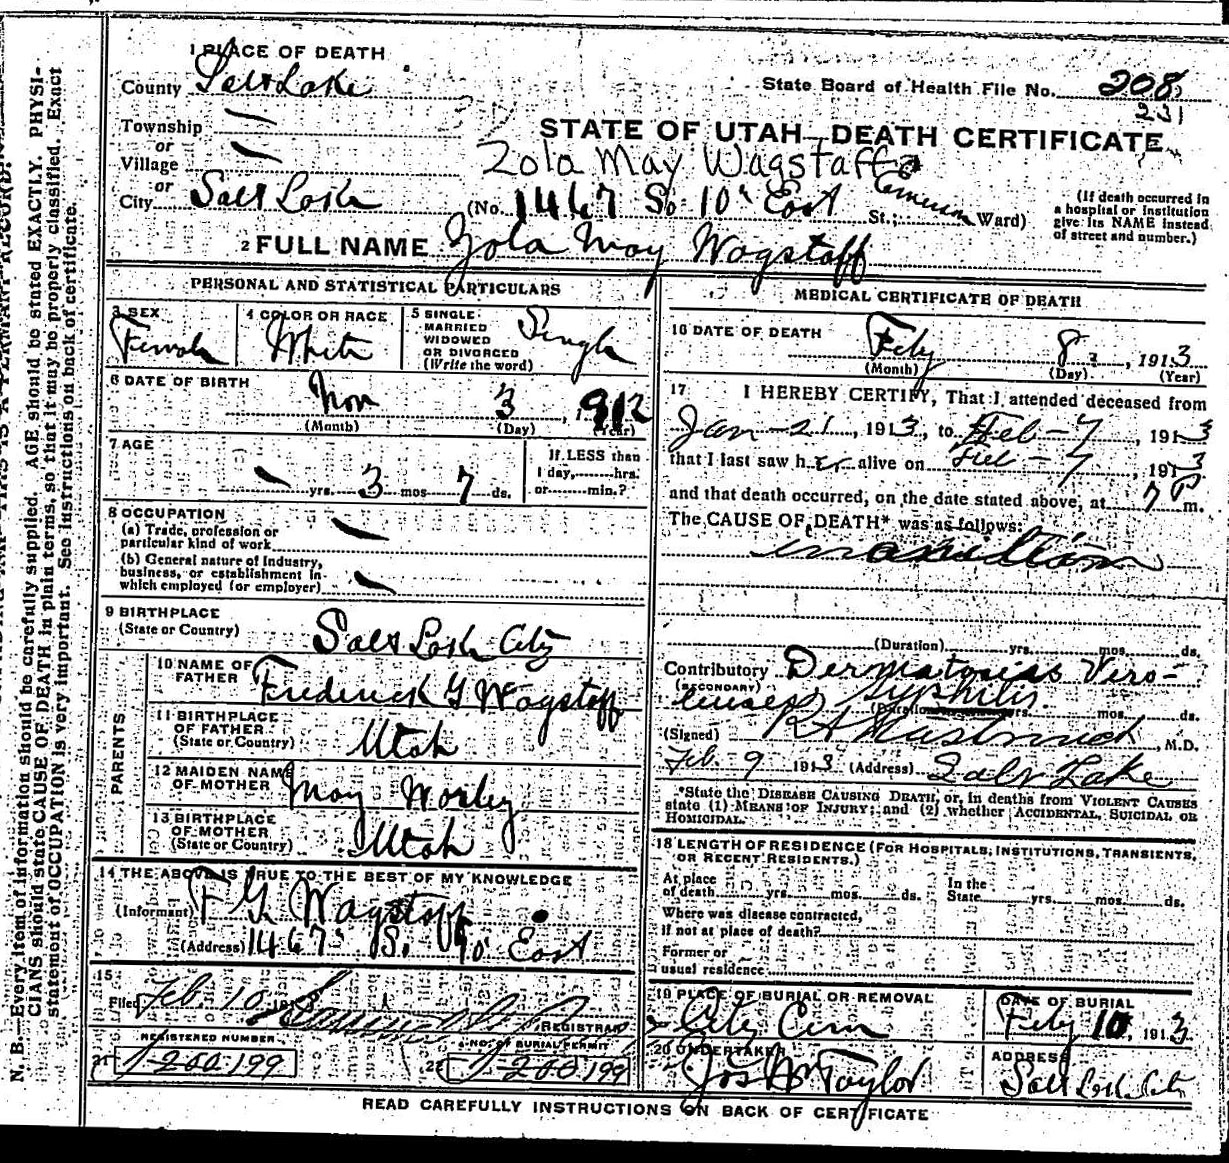 1 PLACE OF DEATH
County Salt Lake
State Board of Health File No. 208
231
Township
or
Village
or
City Salt Lake
STATE OF UTAH—DEATH CERTIFICATE
Zola May Wagstaff
(No. 1467 So. 10' East St.; Ward)
(If death occurred in
a hospital or institution
give its NAME instead
of street and number.)
2 FULL NAME Zola May Wagstaff
PERSONAL AND STATISTICAL PARTICULARS
3 SEX
Female
4 COLOR OR RACE
White
5 SINGLE
MARRIED
WIDOWED
OR DIVORCED
(Write the word)
Single
6 DATE OF BIRTH
Nov 3, 1912
(Month) (Day) (Year)
7 AGE
yrs. 3 mos 7 ds.
If LESS than
1 day, hrs.
or min.?
8 OCCUPATION
(a) Trade, profession or
particular kind of work
(b) General nature of industry,
business, or establishment in
which employed (or employer)
9 BIRTHPLACE
(State or Country)
Salt Lake City
PARENTS
10 NAME OF
FATHER
Frederick G Wagstaff
11 BIRTHPLACE
OF FATHER
(State or Country)
Utah
12 MAIDEN NAME
OF MOTHER
May Worley
13 BIRTHPLACE
OF MOTHER
(State or Country)
Utah
14 THE ABOVE IS TRUE TO THE BEST OF MY KNOWLEDGE
(Informant) F G Wagstaff
(Address) 1467 S. 10' East
15
Filed Feb 10 191
REGISTRAR
REGISTERED NUMBER
21 1-200-199
NO. OF BURIAL PERMIT
22 1-200-199
MEDICAL CERTIFICATE OF DEATH
16 DATE OF DEATH
Feby 8, 1913
(Month) (Day) (Year)
17 I HEREBY CERTIFY, That I attended deceased from
Jan - 21, 1913, to Feb - 7, 1913
that I last saw her alive on Feb - 7, 1913
and that death occurred, on the date stated above, at 7 P m.
The CAUSE OF DEATH* was as follows:
inanition
(Duration) yrs. mos. ds.
Contributory Dermatosias
(SECONDARY) Syphilis
(Duration) yrs. mos. ds.
(Signed) M.D.
Feb. 9 1913 (Address) Salt Lake
*State the DISEASE CAUSING DEATH, or, in deaths from VIOLENT CAUSES
state (1) MEANS OF INJURY; and (2) whether ACCIDENTAL, SUICIDAL OR
HOMICIDAL.
18 LENGTH OF RESIDENCE (FOR HOSPITALS, INSTITUTIONS, TRANSIENTS,
OR RECENT RESIDENTS.)
At place
of death yrs. mos. ds.
In the
State yrs. mos. ds.
Where was disease contracted,
if not at place of death?
Former or
usual residence
19 PLACE OF BURIAL OR REMOVAL
City Cem
DATE OF BURIAL
Feby 10, 1913
20 UNDERTAKER
Jos Wm Taylor
ADDRESS
Salt Lake City
READ CAREFULLY INSTRUCTIONS ON BACK OF CERTIFICATE
N. B.—Every item of information should be carefully supplied. AGE should be stated EXACTLY. PHYSI-
CIANS should state CAUSE OF DEATH in plain terms, so that it may be properly classified. Exact
statement of OCCUPATION is very important. See instructions on back of certificate.